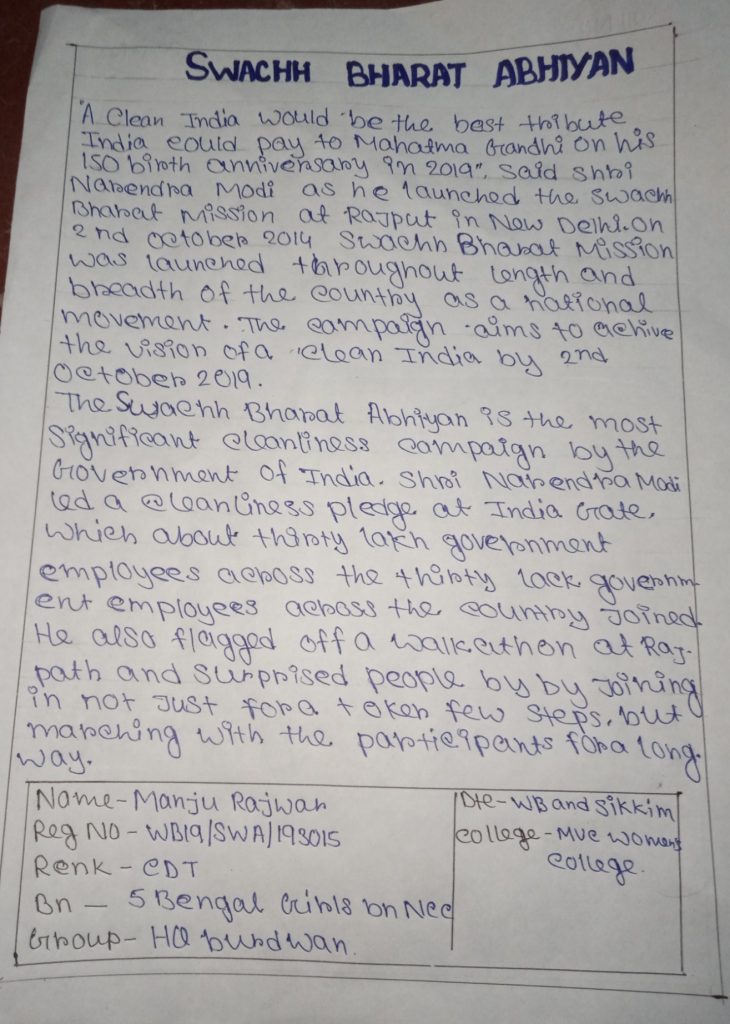 SWACHH BHARAT ABHIYAN
"A Clean India would be the best tribute
India could pay to Mahatma Gandhi on his
150 birth anniversary in 2019", said Shri
Narendra Modi as he launched the Swachh
Bharat Mission at Rajput in New Delhi. On
2nd October 2014 Swachh Bharat Mission
was launched throughout length and
breadth of the country as a national
movement. The campaign aims to achive
the vision of a clean India by 2nd
October 2019.
The Swachh Bharat Abhiyan is the most
Significant cleanliness campaign by the
Government of India. Shri Narendra Modi
led a cleanliness pledge at India Gate,
which about thirty lakh government
employees across the thirty lack governm-
ent employees across the country Joined.
He also flagged off a walkathon at Raj-
path and surprised people by by Joining
in not Just for a token few steps, but
marching with the participants for a long
way.
Name - Manju Rajwar
Reg NO - WB19/SWA/193015
Renk - CDT
Bn - 5 Bengal Girls bn Ncc
Group - HQ burdwan.
Dte - WB and Sikkim
College - MUC Women's
College.